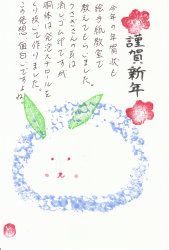 謹賀新年
今年の年賀状も
絵手紙教室で
教えてもらいました。
うさぎさんの耳は
消しゴム印ですが
胴体は発泡スチロールを
くり抜いて作りました。
この発想 面白いですよね